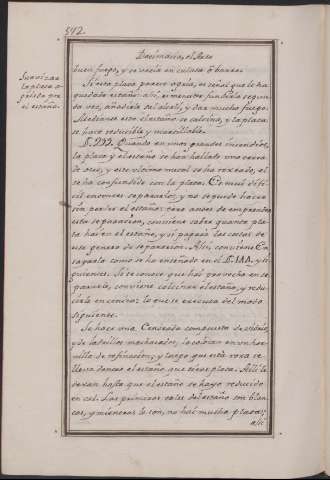 572.
Docimacia, el Arte
buen fuego, y se vacía en culata ô barra.
Suavizar
la plata a-
grilada por
el estaño.
Si esta plata parece agria, es señal que le ha
quedado estaño: así, es menester fundirla segun-
da vez, añadirla sal alcali, y dar mucho fuego.
Mediante esto el estaño se calcina, y la plata
se hace reducible y martillable.
§. 222. Quando en unos grandes incendios,
la plata y el estaño se han hallado uno cerca
de otro, y este ultimo metal se ha regado, el
se ha confundido con la plata. Es mui difi-
cil entonces separarlo, y no se puede hacer
sin perder el estaño: pero antes de emprender
esta separacion, conviene saber quanta pla-
ta hai en el estaño, y si pagará los costos de
este genero de separacion. Allí conviene En-
sayarla como se ha enseñado en el §. 144. y si-
guientes. Si se conoce que hai provecho en se-
pararla, conviene calcinar el estaño, y redu-
cirla en ceniza: lo que se executa del modo
siguiente.
Se hace una Cendrada compuesta de vidrio,
y de ladrillos machacados, la colocan en un hor-
nillo de refinacion; y luego que está roxa se
lleva dentro el estaño que tiene plata. Allí le
dexan hasta que el estaño se haya reducido
en cal. Las primeras cales del estaño son blan-
cas, y mientras lo son, no hai mucha plata:
alli